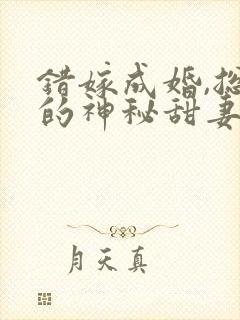 错嫁成婚,总
的神秘甜妻
月天真